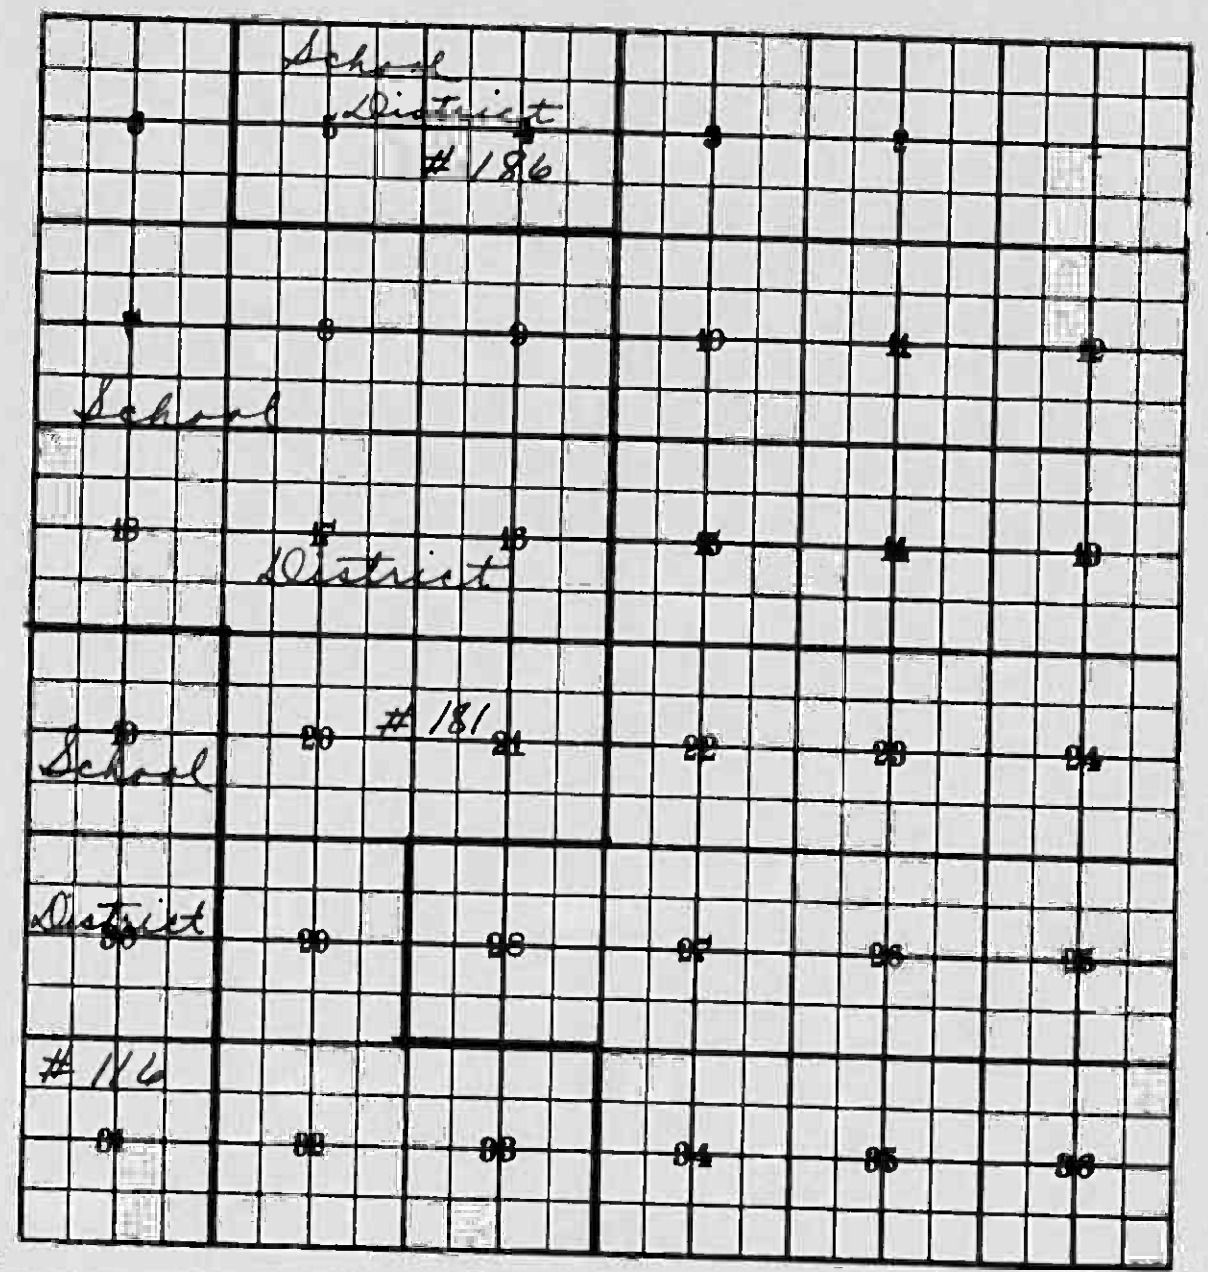 School
District
# 186
6 5 4 3 2
7 8 9 10 11 12
School
18 17 16 15 14 13
District
# 181
19 20 21 22 23 24
School
District
30 29 28 27 26 25
# 116
31 32 33 34 35 36